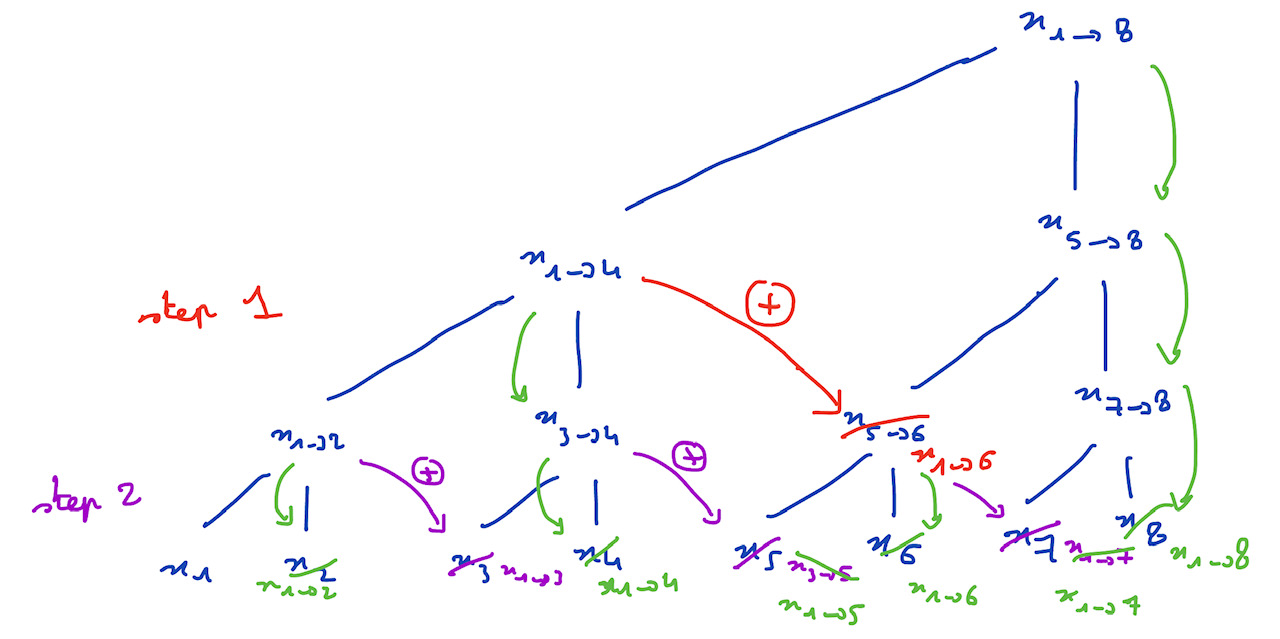 x1→8
x5→8
x1→4
step 1
+
x7→8
x1→2
x3→4
x5→6
x1→6
step 2
+
+
x1
x2
x1→2
x3
x1→3
x4
x1→4
x5
x3→5
x1→5
x6
x1→6
x7
x1→7
x1→7
x8
x1→8